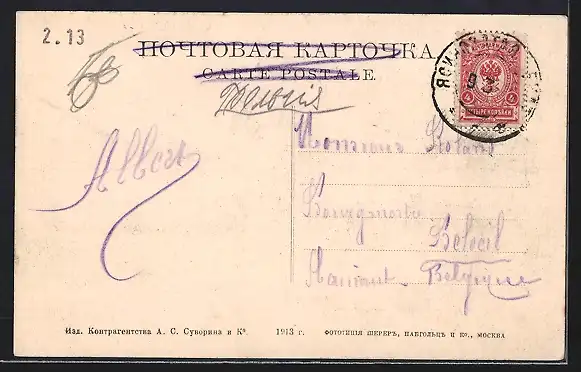 2.13
ПОЧТОВАЯ КАРТОЧКА
CARTE POSTALE.
Бельгія
Albert
Monsieur Roland
Beloeil
Hainaut - Belgique
Изд. Контрагентства А. С. Суворина и Кº. 1913 г. ФОТОТИПІЯ ШЕРЕРЪ, НАБГОЛЬЦЪ И Ко., МОСКВА